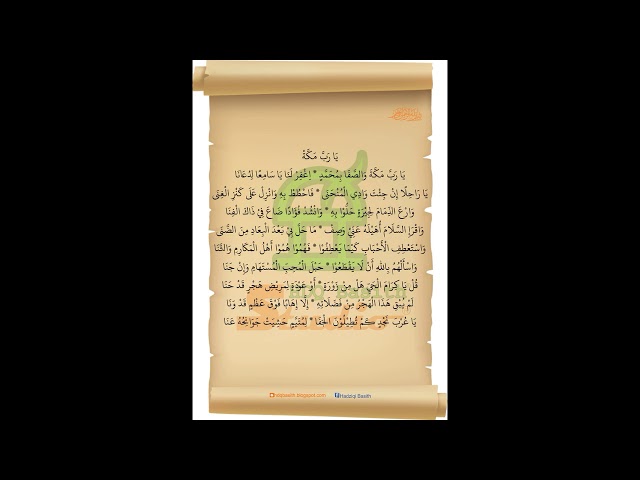 يَا رَبَّ مَكَّةَ
يَا رَبَّ مَكَّةَ وَالصَّفَا بِمُحَمَّدٍ * اِغْفِرْ لَنَا يَا سَامِعًا لِدُعَانَا
يَا رَاحِلًا إِنْ جِئْتَ وَادِي الْمُنْحَنَى * فَاحْطُطْ بِهِ وَانْزِلْ عَلَى كَنْزِ الْغِنَى
وَارْعَ الذِّمَامَ لِجِيْرَةٍ حَلُّوْا بِهِ * وَانْشُدْ فُؤَادًا ضَاعَ فِيْ ذَاكَ الْفِنَا
وَاقْرَا السَّلَامَ أُهَيْلَهُ عَنِّيْ وَصِفْ * مَا حَلَّ بِيْ بَعْدَ الْبِعَادِ مِنَ الضَّنَى
وَاسْتَعْطِفِ الْأَحْبَابَ كَيْمَا يَعْطِفُوْا * فَهُمُوْا هُمُوْا أَهْلُ الْمَكَارِمِ وَالثَّنَا
وَاسْأَلْهُمُ بِاللهِ أَنْ لَا يَقْطَعُوْا * حَبْلَ الْمُحِبِّ الْمُسْتَهَامِ وَإِنْ جَنَا
قُلْ يَا كِرَامَ الْحَيِّ هَلْ مِنْ زَوْرَةٍ * أَوْ عَوْدَةٍ لِمَرِيْضِ هَجْرٍ قَدْ حَنَا
لَمْ يُبْقِ هَذَا الْهَجْرُ مِنْ فَضَلَاتِهِ * إِلَّا إِهَابًا فَوْقَ عَظْمٍ قَدْ وَنَا
يَا عُرْبَ نَجْدٍ كَمْ تُطِيْلُوْنَ الْجَفَا * لِمُتَيَّمٍ حَشِيَتْ جَوَانِحُهُ عَنَا
Hadziqi Basith